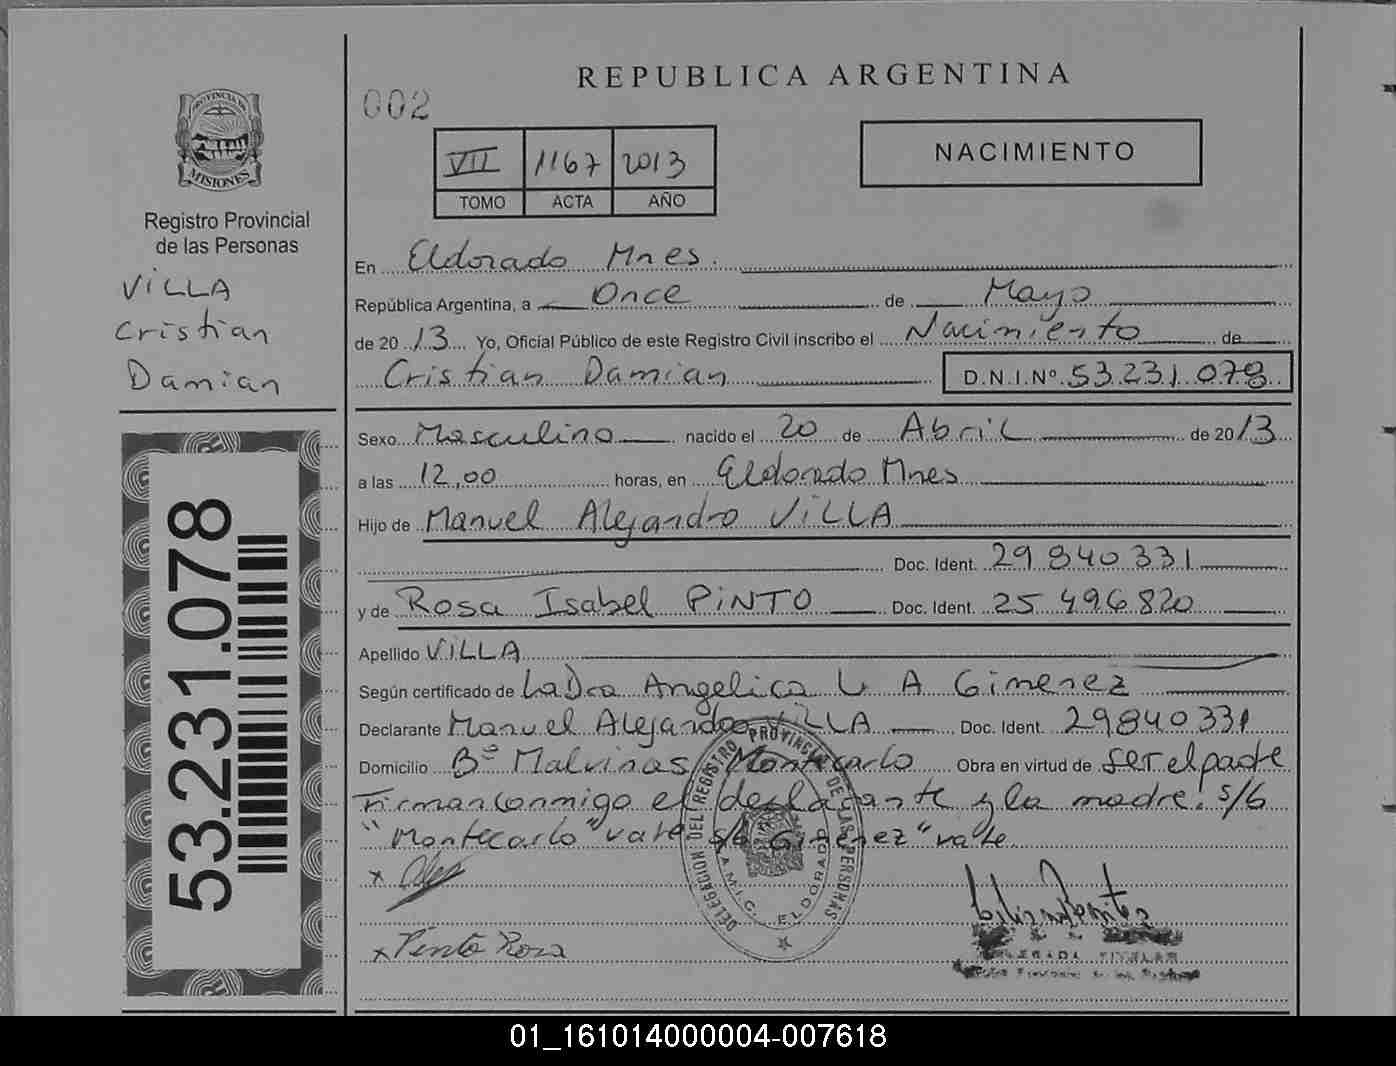 REPUBLICA ARGENTINA
002
PROVINCIA DE
MISIONES
VII 1167 2013
TOMO ACTA AÑO
NACIMIENTO
Registro Provincial
de las Personas
VILLA
Cristian
Damian
En Eldorado Mnes.
República Argentina, a Once de Mayo
de 20 13 Yo, Oficial Público de este Registro Civil inscribo el Nacimiento de
Cristian Damian D.N.I.Nº 53.231.078
Sexo Masculino nacido el 20 de Abril de 20 13
a las 12,00 horas, en Eldorado Mnes
Hijo de Manuel Alejandro VILLA
Doc. Ident. 29840331
y de Rosa Isabel PINTO Doc. Ident. 25.496.820
Apellido VILLA
Según certificado de La Dra Angelica L A Gimenez
Declarante Manuel Alejandro VILLA Doc. Ident. 29840331
Domicilio Bº Malvinas Montecarlo Obra en virtud de ser el padre
Firman conmigo el declarante y la madre. s/b
"Montecarlo" vale s/b Gimenez" vale
x
x Pinto Rosa
DELEGACION DEL REGISTRO PROVINCIAL DE LAS PERSONAS
ELDORADO
TITULAR
53.231.078
01_161014000004-007618